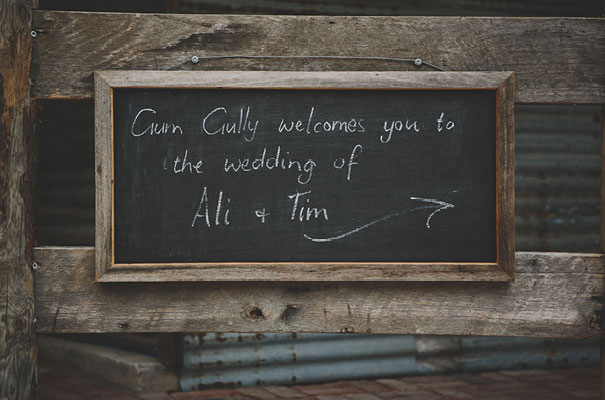 Gum Gully welcomes you to
the wedding of
Ali & Tim